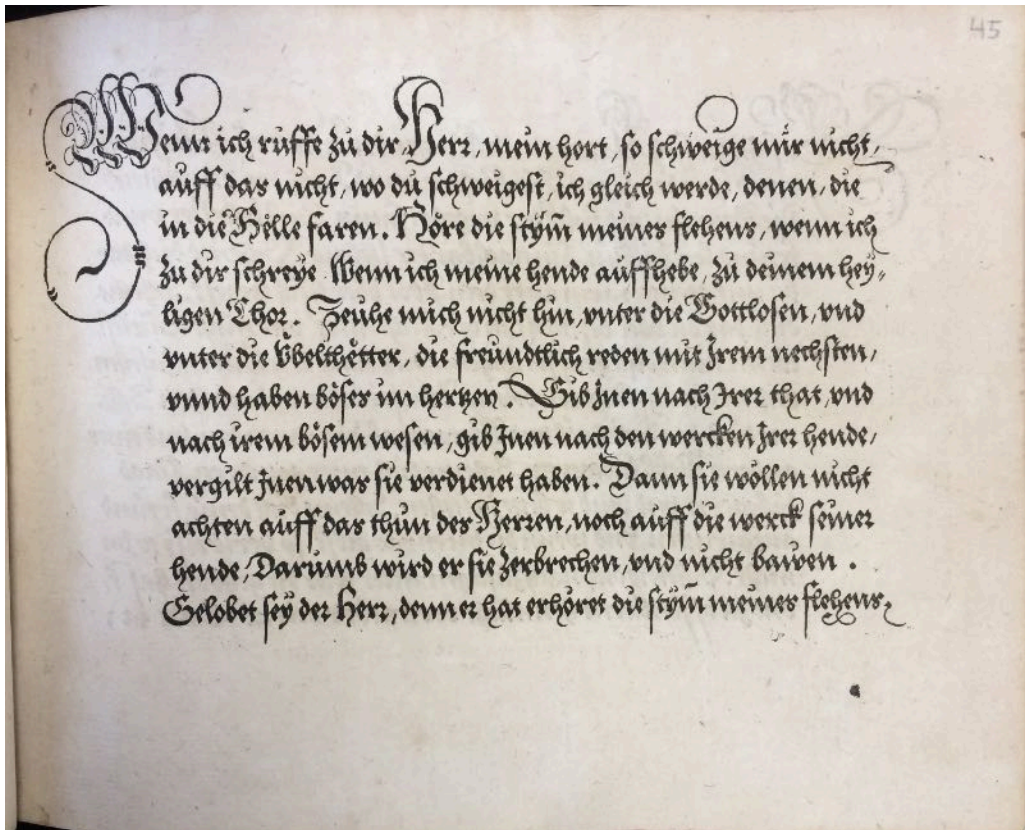 45
Wenn ich ruffe zu dir Herr, mein hort, so schweige mir nicht,
auff das nicht, wo du schweigest, ich gleich werde, denen, die
in die Helle faren. Höre die stym̃ meines flehens, wenn ich
zu dir schreye Wenn ich meine hende auffhebe, zu deinem hey=
ligen Chor. Zeuhe mich nicht hin, vnter die Gottlosen, vnd
vnter die Vbelthetter, die freundtlich reden mit Jrem nechsten,
vnnd haben böses im hertzen. Gib Jnen nach Jrer that, vnd
nach irem bösem wesen, gib Jnen nach den wercken Jrer hende,
vergilt Jnen was sie verdienet haben. Dann sie wöllen nicht
achten auff das thun des Herren, noch auff die werck seiner
hende, Darumb wird er sie zerbrechen, vnd nicht bawen.
Gelobet sey der Herr, denn er hat erhöret die stym̃ meines flehens,